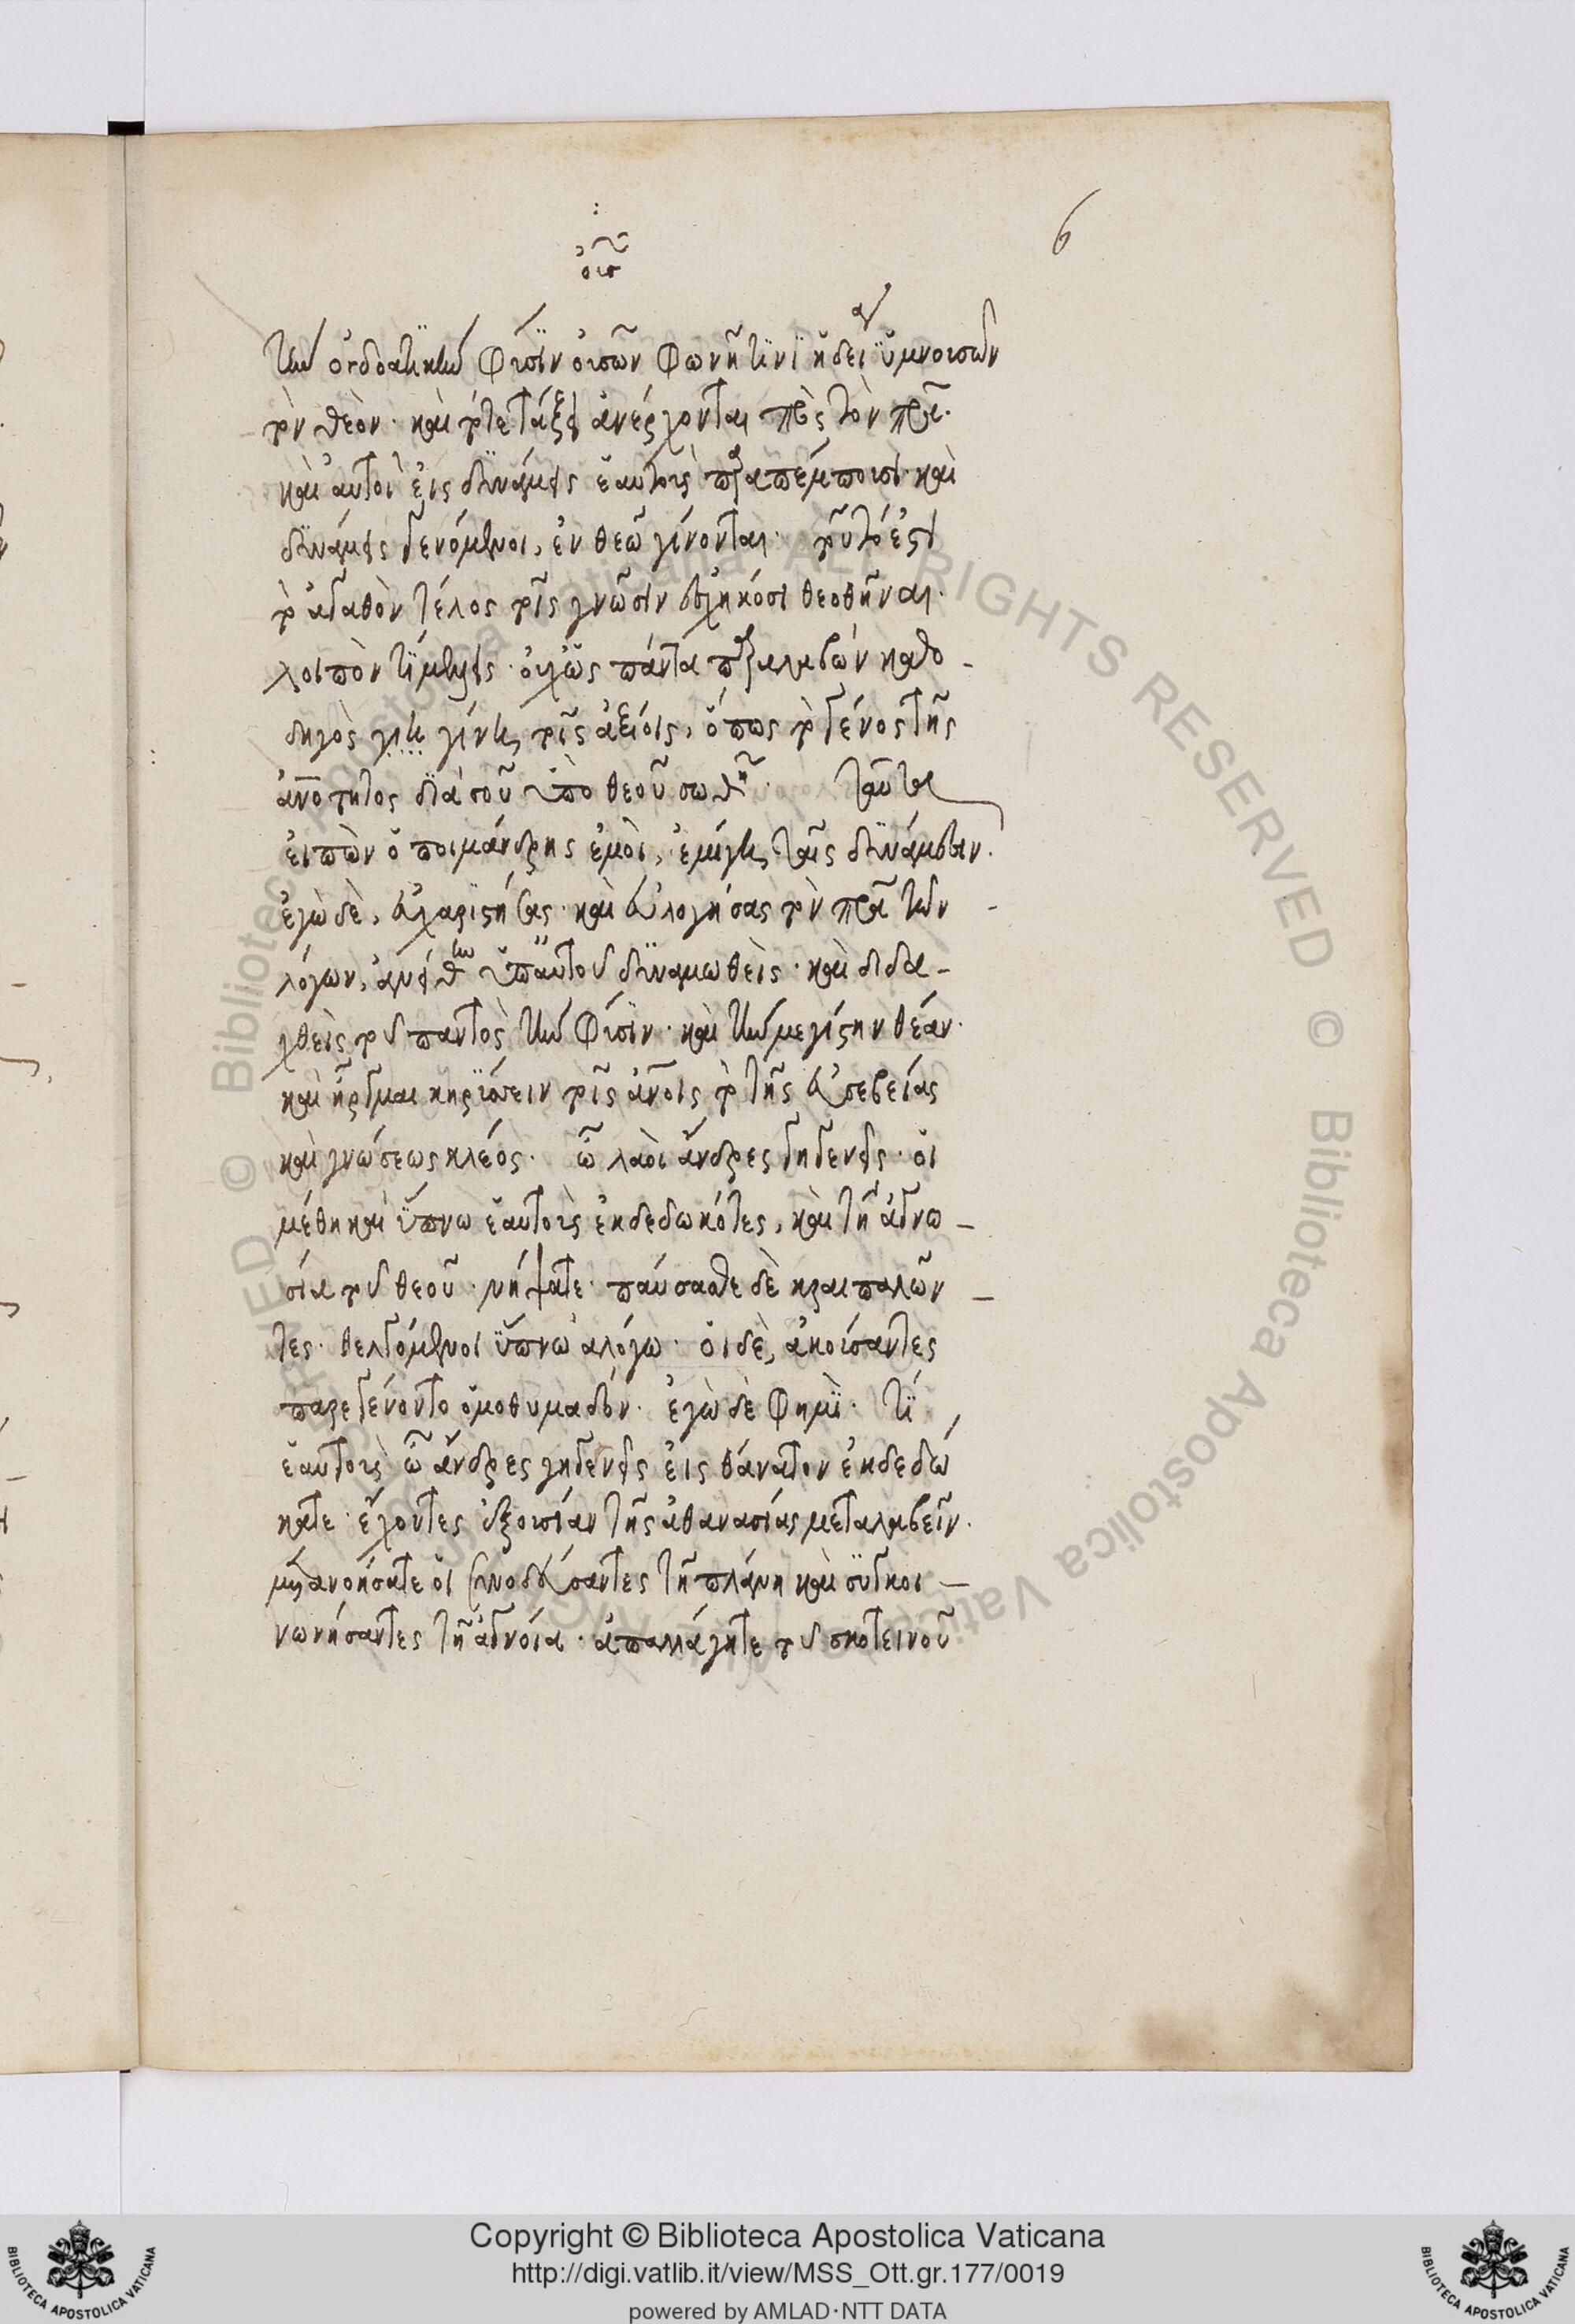 6
οὐσ͂
τὴν ὀγδοατικὴν φύσϊν οὐσῶν φωνῆ τϊνϊ ἡδεία ὑμνουσῶν
τὸν θεὸν· καὶ τότε τάξει ἀνέρχονται πρὸς τὸν πρ̅α̅·
καὶ αὐτοὶ εἰς δϋνάμεις ἑαυτοὺς παραπέμπουσι· καὶ
δϋνάμεις γενόμενοι, ἐν θεῶ γίνονται· τοῦτό ἐστι
τὸ ἀγαθὸν τέλος τοῖς γνῶσιν ἐσχηκόσι θεοθῆναι·
λοιπὸν τϊ μέλλεις· οὐχ ὡς πάντα παραλαβὼν καθο-
δηγὸς γιν γίνη, τοῖς ἀξίοις, ὅπως τὸ γένος τῆς
ἀν̅ο̅τητος διὰ σοῦ ὑπὸ θεοῦ σωθῆ· ταῦτα
εἰπὼν ὁ ποιμάνδρης ἐμοὶ, ἐμίγη, ταῖς δϋνάμεσιν·
ἐγὼ δὲ, εὐχαριστήσας· καὶ εὐλογήσας τὸν πρ̅α̅ τῶν
λόγων, ἀνείθην ὑπ αὐτοῦ δϋναμωθεὶς· καὶ διδα-
χθεὶς τοῦ παντὸς τὴν φύσϊν· καὶ τὴν μεγίστην θέαν·
καὶ ἦργμαι κηρύσσειν τοῖς ἀν̅οις τὸ τῆς εὐσεβείας
καὶ γνώσεως κλέος· ὦ λαοὶ ἄνδρες γηγενεῖς· οἱ
μέθη καὶ ὕπνω ἑαυτοὺς ἐκδεδωκότες, καὶ τῆ ἀγνω-
σία τοῦ θεοῦ· νήψατε· παύσασθε δὲ κραιπαλῶν-
τες· θελγόμενοι ὕπνω ἀλόγω· οἱ δὲ, ἀκούσαντες
παρεγένοντο ὁμοθυμαδόν· ἐγὼ δὲ φημὶ· τϊ
ἑαυτοὺς ὦ ἄνδρες γηγενεῖς εἰς θάνατον ἐκδεδώ
κατε· ἔχοντες ἐξουσίαν τῆς ἀθανασίας μεταλαβεῖν·
μετανοήσατε οἱ συνοδεύσαντες τῆ πλάνη καὶ συγκοι-
νωνήσαντες τῆ ἀγνοία· ἀπαλλάγητε τοῦ σκοτεινοῦ
© Biblioteca Apostolica Vaticana ALL RIGHTS RESERVED
Copyright © Biblioteca Apostolica Vaticana
http://digi.vatlib.it/view/MSS_Ott.gr.177/0019
powered by AMLAD·NTT DATA
BIBLIOTECA APOSTOLICA VATICANA
BIBLIOTECA APOSTOLICA VATICANA